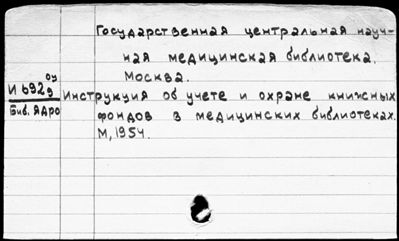 Государственная центральная науч-
ная медицинская библиотека.
Москва.
оу
И 6929
Инструкция об учете и охране книжных
Биб. ядро
фондов в медицинских библиотеках.
М, 1954.